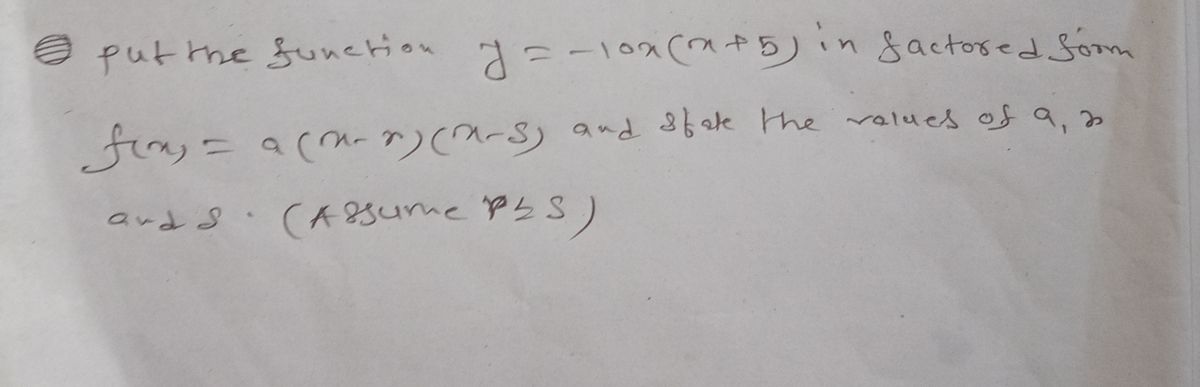 put the function y = -10x(x+5) in factored form
f(x) = a(x-r)(x-s) and state the values of a, r
and s. (Assume r ≤ s)